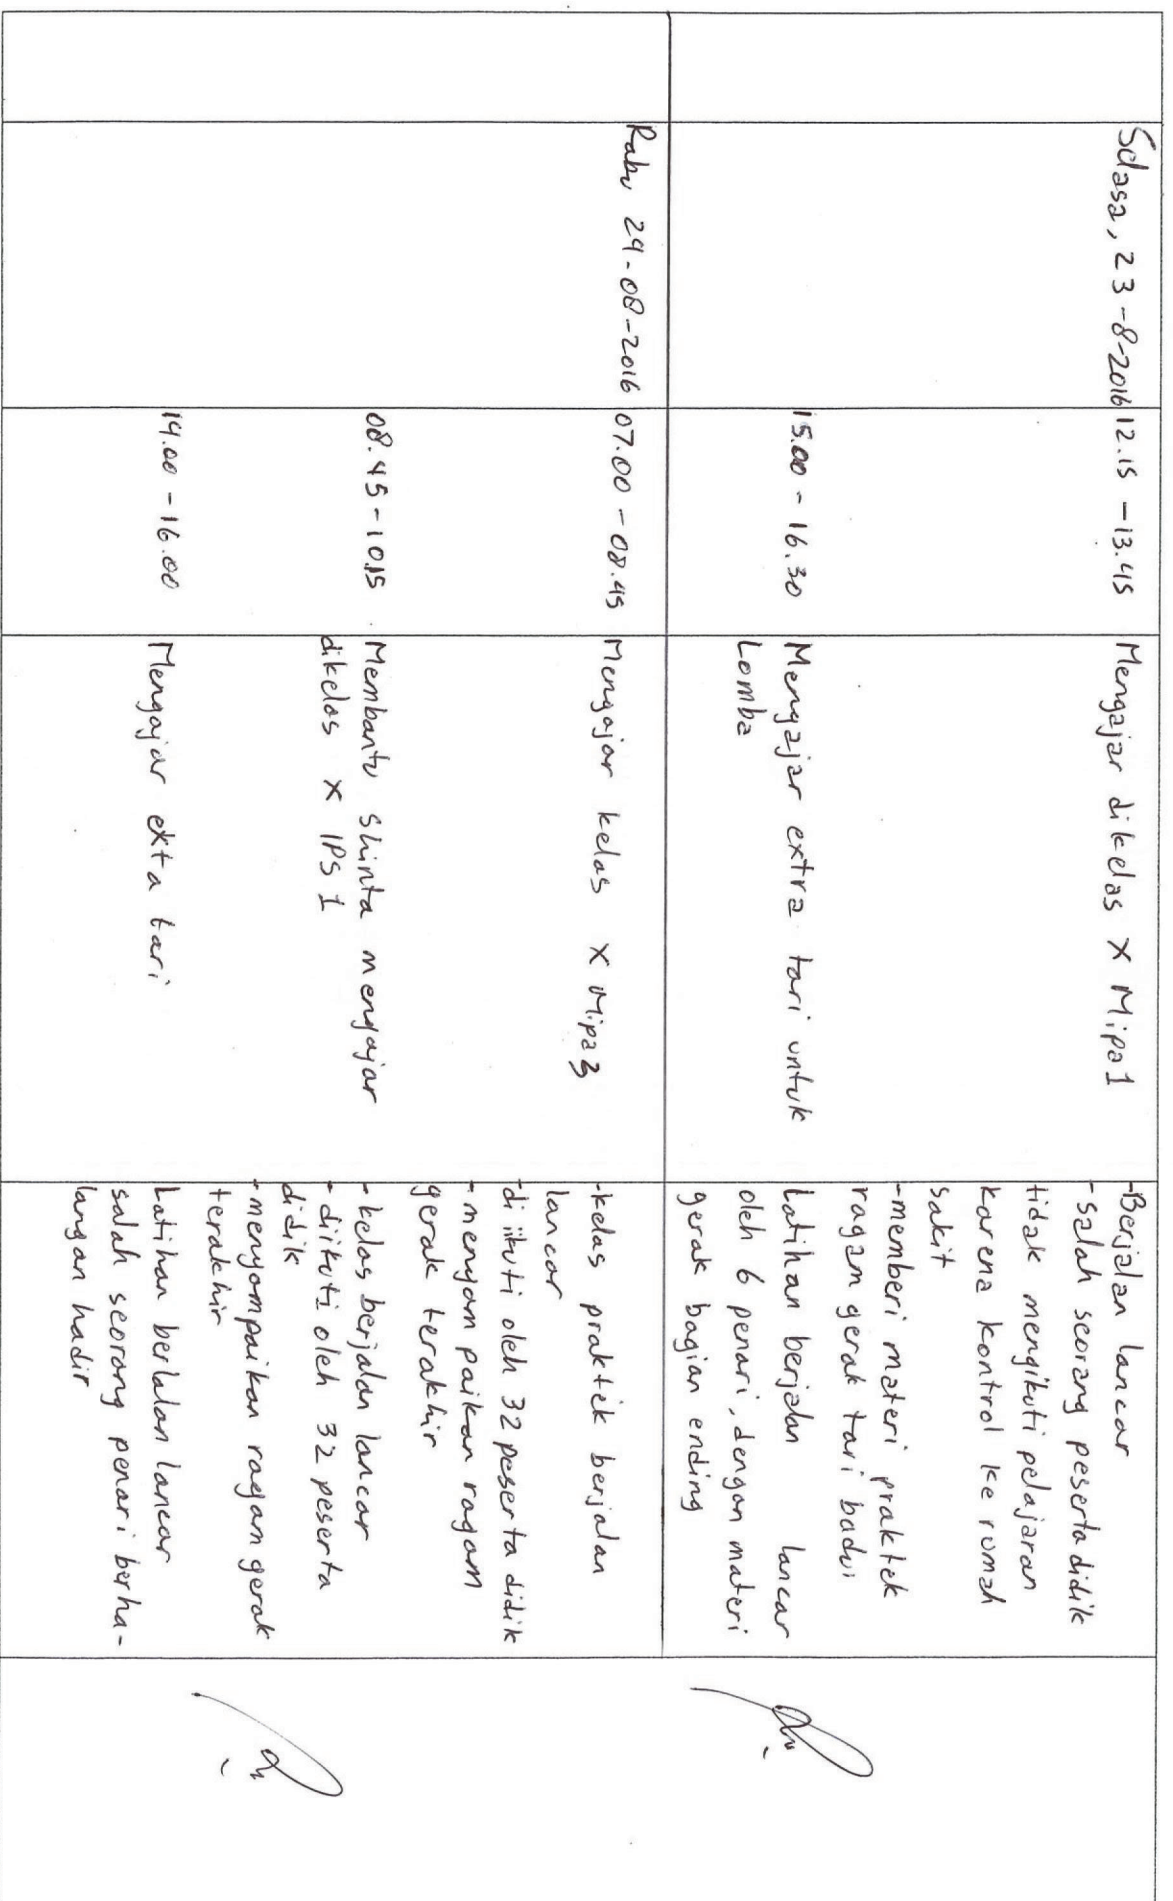 Selasa, 23-8-2016
12.15 - 13.45
Mengajar dikelas X Mipa 1
-Berjalan lancar
-salah seorang peserta didik
tidak mengikuti pelajaran
karena kontrol ke rumah
sakit
-memberi materi praktek
ragam gerak tari badui
15.00 - 16.30
Mengajar extra tari untuk
Lomba
Latihan berjalan lancar
oleh 6 penari, dengan materi
gerak bagian ending
Rabu 24-08-2016
07.00 - 08.45
Mengajar kelas X Mipa 3
-kelas praktek berjalan
lancar
-di iikuti oleh 32 peserta didik
-menyam paikan ragam
gerak terakhir
08.45 - 1015
Membantu Shinta mengajar
dikelas X IPS 1
-kelas berjalan lancar
-diikuti oleh 32 peserta
didik
-menyampaikan ragam gerak
terakhir
14.00 - 16.00
Mengajar exta tari
Latihan berlalan lancar
salah seorang penari berha-
langan hadir